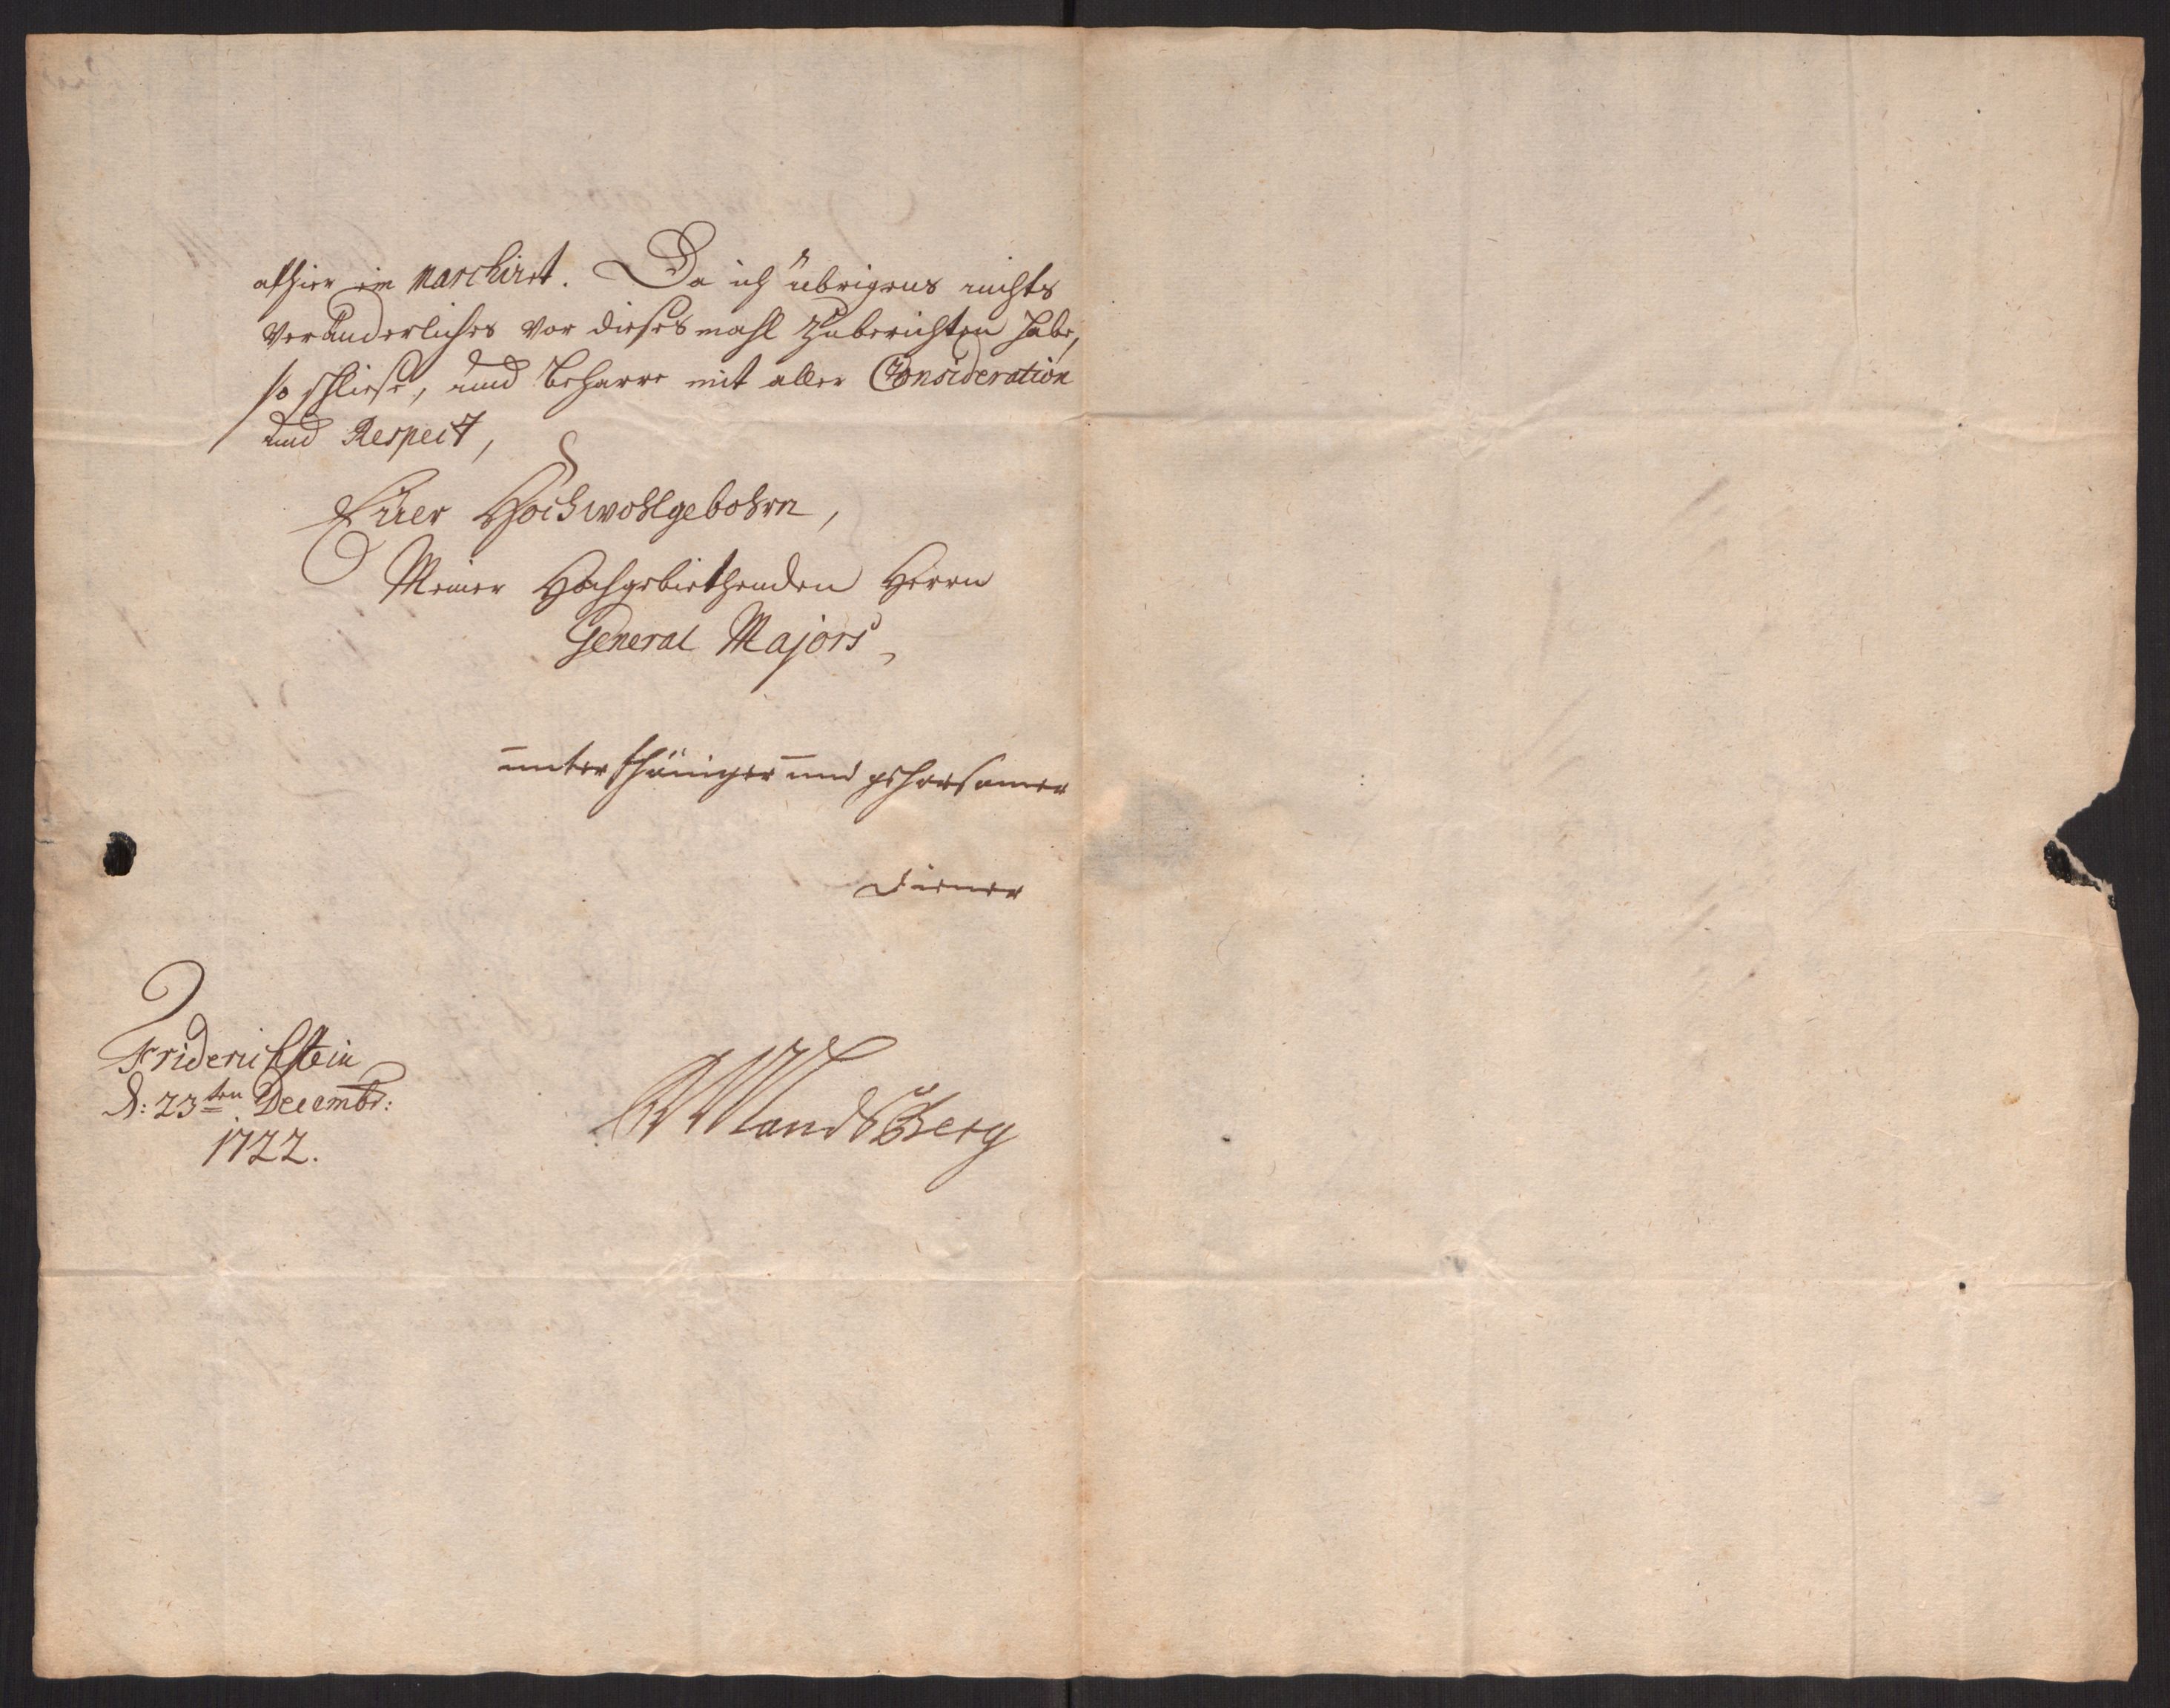 alhier ein marchiret. Da ich übrigens nichts
veränderliches vor dieses mahl zuberichten habe,
so schließe, und beharre mit aller Consideration
und Respect,
Eüer Hochwohlgebohrn,
Meines Hochgebiethenden Herrn
General Majors,
unterthäniger und gehorsamer
Diener
Friderichstein
d: 23ten Decembr:
1722.
Landsberg